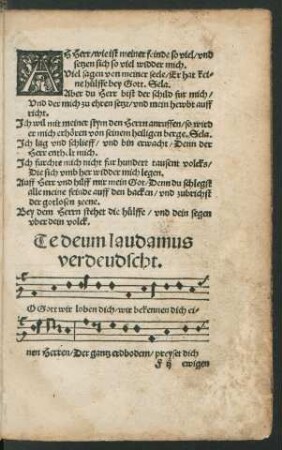 AH Herr/wie ist meiner feinde so viel/vnd
setzen sich so viel widder mich.
Viel sagen von meiner seele/Er hat kei-
ne hülffe bey Gott. Sela.
Aber du Herr bist der schild fur mich/
Vnd der mich zu ehren setzt/vnd mein hewbt auff
richt.
Ich wil mit meiner stym den Herrn anruffen/so wird
er mich erhören von seinem heiligen berge. Sela.
Ich lag vnd schlieff/vnd bin erwacht/Denn der
Herr enthelt mich.
Ich furchte mich nicht fur hundert tausent volcks/
Die sich vmb her widder mich legen.
Auff Herr vnd hülff mir mein Got/Denn du schlegst
alle meine feinde auff den backen/vnd zubrichst
der gotlosen zeene.
Bey dem Herrn stehet die hülffe/vnd dein segen
vber dein volck.
Te deum laudamus
verdeudscht.
O Gott wir loben dich/wir bekennen dich ei-
nen Herren/Der gantz erdbodem/preyset dich
F ij ewigen